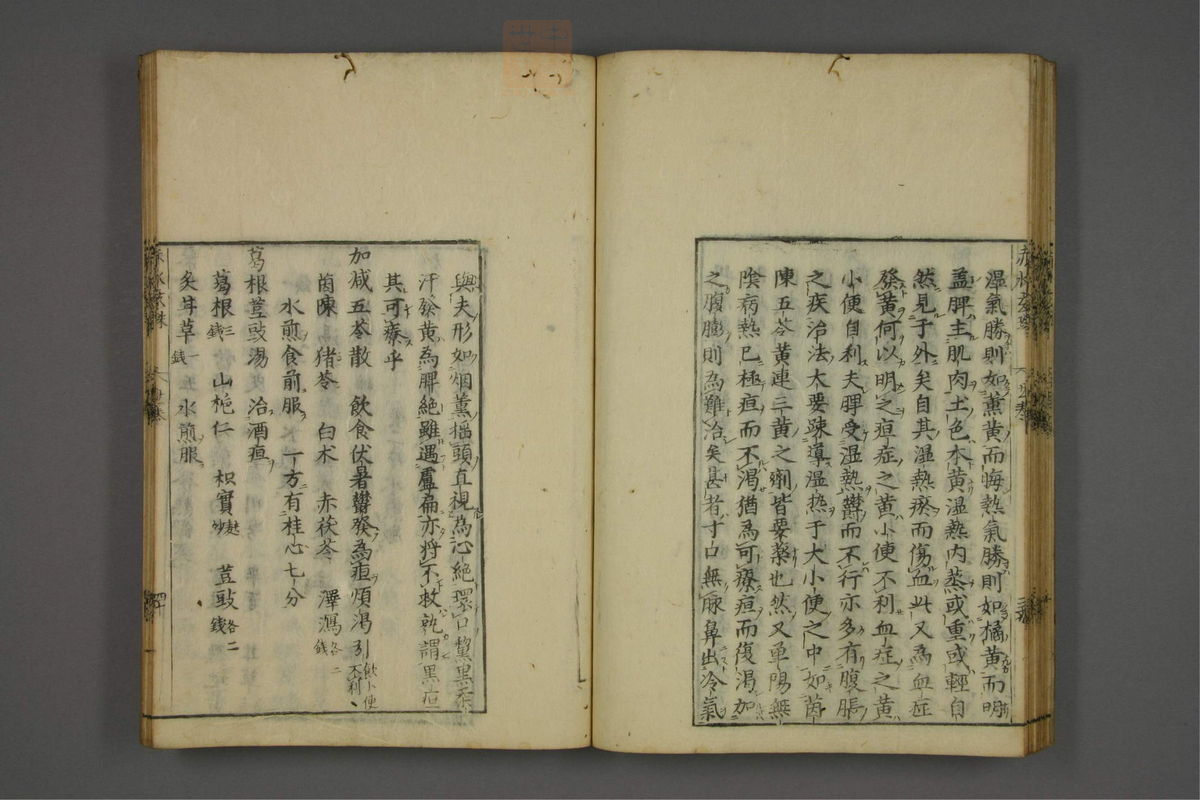 湿氣勝則如薫黄而晦熱氣勝則如橘黄而明
盖脾主肌肉土色本黄湿熱内蒸或重或輕自
然見于外矣自其湿熱瘀而傷血此又為血症
發黄何以明之疸症之黄小便不利血症之黄
小便自利夫脾受湿熱欝而不行亦多有腹脹
之疾治法大要疎導湿热于大小便之中如茵
陳五苓黄連三黄之劑皆要藥也然又単陽無
陰病熱已極疸而不渇猶為可療疸而復渇加
之腹膨則為難治矣甚者寸口無脉鼻出冷氣
與夫形如烟薫揺頭直視為心絶環口黧黒柔
汗發黄為脾絶雖遇盧扁亦将不救孰謂黒疸
其可療乎
加减五苓散 飲食伏暑欝發為疸煩渇引飲小便不利
茵陳 猪苓 白术 赤茯苓 澤瀉各二錢
水煎食前服 一方有桂心七分
葛根荳豉湯 治酒疸
葛根三錢 山梔仁 枳實麸炒 荳豉各二錢
炙甘草一錢 水煎服